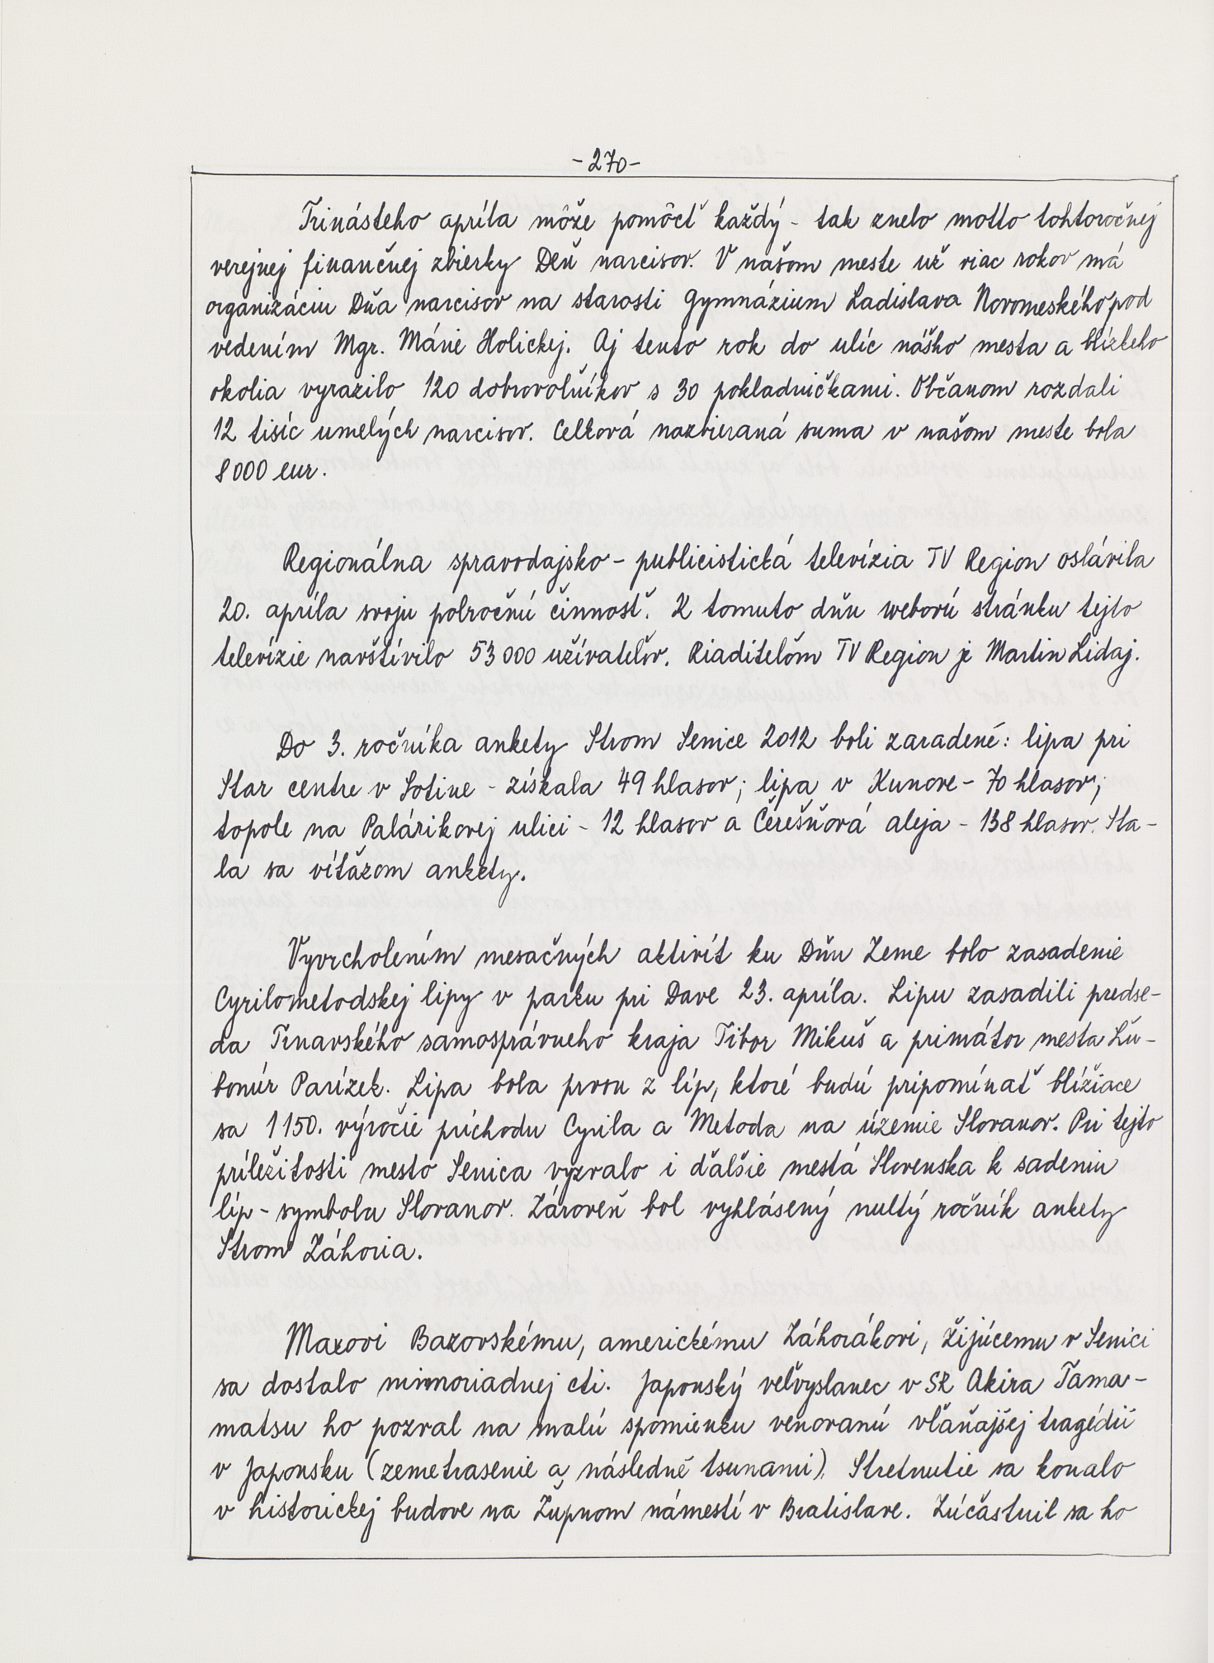 -270-
Trinásteho apríla môže pomôcť každý - tak znelo motto tohtoročnej
verejnej finančnej zbierky Deň narcisov. V našom meste už viac rokov má
organizáciu Dňa narcisov na starosti Gymnázium Ladislava Novomeského pod
vedením Mgr. Márie Holickej. Aj tento rok do ulíc nášho mesta a blízkeho
okolia vyrazilo 120 dobrovoľníkov s 30 pokladničkami. Občanom rozdali
12 tisíc umelých narcisov. Celková nazbieraná suma v našom meste bola
8 000 eur.
Regionálna spravodajsko - publicistická televízia TV Region oslávila
20. apríla svoju polročnú činnosť. K tomuto dňu webovú stránku tejto
televízie navštívilo 53 000 užívateľov. Riaditeľom TV Region je Martin Lidaj.
Do 3. ročníka ankety Strom Senice 2012 boli zaradené: lipa pri
Star centre v Sotine - získala 49 hlasov; lipa v Kunove - 70 hlasov;
topole na Palárikovej ulici - 12 hlasov a Čerešňová aleja - 138 hlasov. Sta-
la sa víťazom ankety.
Vyvrcholením mesačných aktivít ku Dňu Zeme bolo zasadenie
Cyrilometodskej lipy v parku pri Dave 23. apríla. Lipu zasadili predse-
da Trnavského samosprávneho kraja Tibor Mikuš a primátor mesta Ľu-
bomír Parízek. Lipa bola prvou z líp, ktoré budú pripomínať blížiace
sa 1150. výročie príchodu Cyrila a Metoda na územie Slovanov. Pri tejto
príležitosti mesto Senica vyzvalo i ďalšie mestá Slovenska k sadeniu
líp - symbolu Slovanov. Zároveň bol vyhlásený nultý ročník ankety
Strom Záhoria.
Maxovi Bazovskému, americkému Záhorákovi, žijúcemu v Senici
sa dostalo mimoriadnej cti. Japonský veľvyslanec v SR Akira Tama-
matsu ho pozval na malú spomienku venovanú vlaňajšej tragédii
v Japonsku (zemetrasenie a následné tsunami). Stretnutie sa konalo
v historickej budove na Župnom námestí v Bratislave. Zúčastnil sa ho